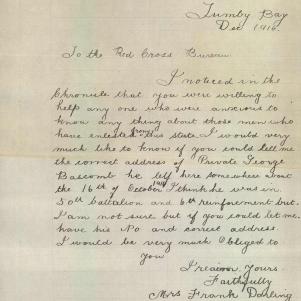 Tumby Bay
Dec 1916.
To the Red Cross Bureau.
I noticed in the
Chronicle that you were willing to
help any one who were anxious to
know any thing about those men who
have enlested from this state. I would very
much like to know if you could tell me
the correct address of Private George
Bascomb he left here somewhere about
the 16th of October I think he was in
50th Battalion and 6th reinforcement but.
I am not sure but if you could let me.
have his No and correct address.
I would be very much Obliged to
you
I remain Yours.
Faithfully
Mrs Frank Darling